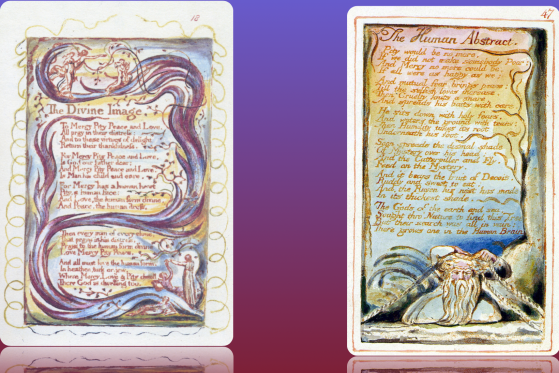 18
The Divine Image.
To Mercy Pity Peace and Love,
All pray in their distress:
And to these virtues of delight
Return their thankfulness.
For Mercy Pity Peace and Love,
Is God our father dear:
And Mercy Pity Peace and Love,
Is Man his child and care.
For Mercy has a human heart
Pity, a human face:
And Love, the human form divine,
And Peace, the human dress.
Then every man of every clime,
That prays in his distress,
Prays to the human form divine
Love Mercy Pity Peace.
And all must love the human form,
In heathen, turk or jew.
Where Mercy, Love & Pity dwell,
There God is dwelling too.
47
The Human Abstract.
Pity would be no more,
If we did not make somebody Poor:
And Mercy no more could be,
If all were as happy as we;
And mutual fear brings peace;
Till the selfish loves increase.
Then Cruelty knits a snare,
And spreads his baits with care.
He sits down with holy fears,
And waters the ground with tears:
Then Humility takes its root
Underneath his foot.
Soon spreads the dismal shade
Of Mystery over his head;
And the Catterpiller and Fly,
Feed on the Mystery.
And it bears the fruit of Deceit,
Ruddy and sweet to eat;
And the Raven his nest has made
In its thickest shade.
The Gods of the earth and sea,
Sought thro' Nature to find this Tree
But their search was all in vain:
There grows one in the Human Brain